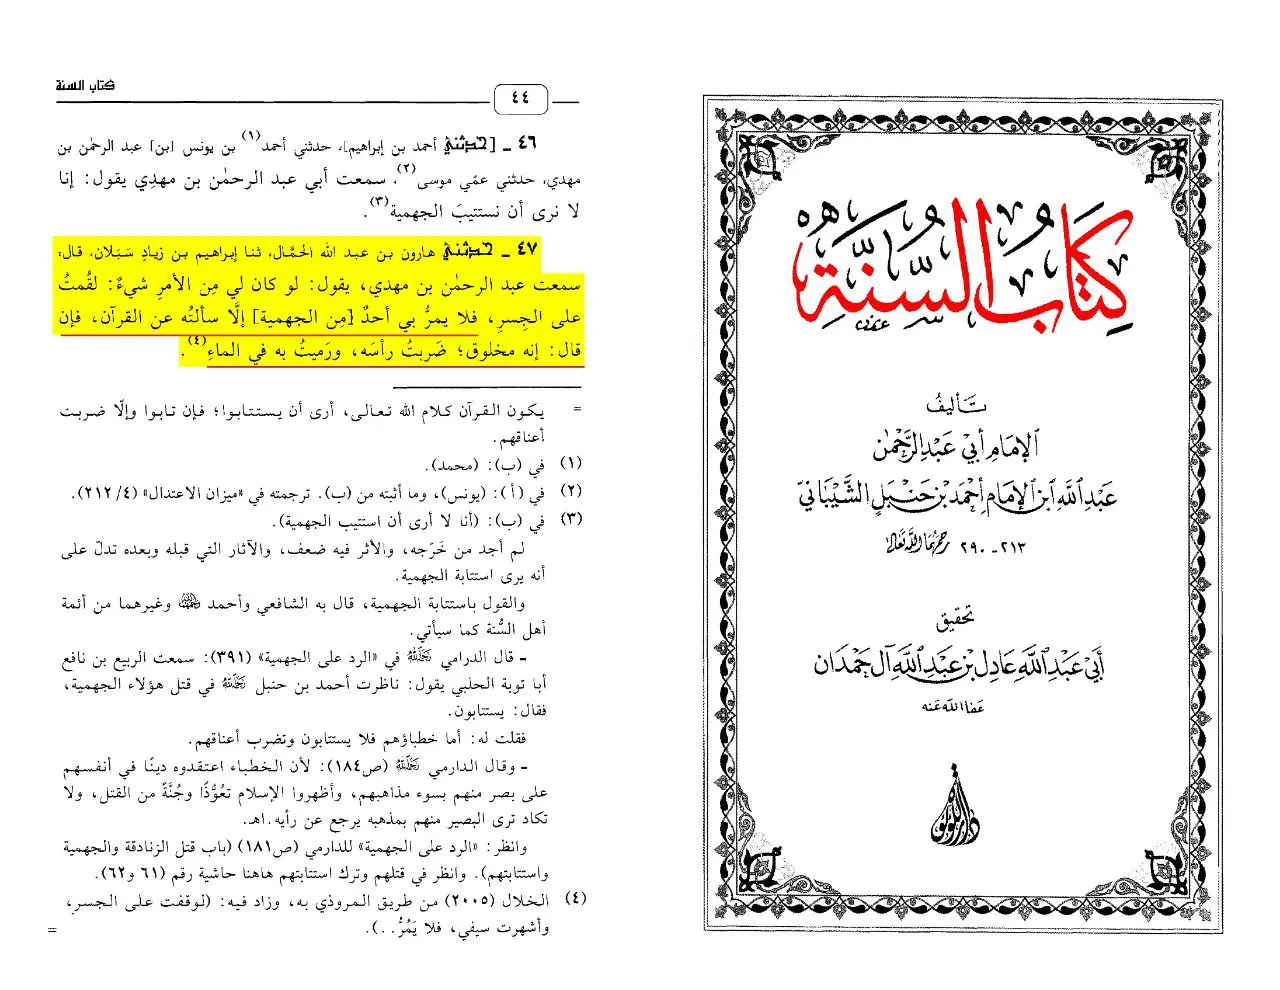 كتاب السنة
٤٤
٤٦ ـ [حدثني أحمد بن إبراهيم]، حدثني أحمد(١) بن يونس [بن] عبد الرحمٰن بن
مهدي، حدثني عمّي موسى(٢)، سمعت أبي عبد الرحمٰن بن مهدي يقول: إنا
لا نرى أن نستتيبَ الجهمية(٣).
٤٧ ـ حدثني هارون بن عبد الله الحَمَّال، ثنا إبراهيم بن زيادٍ سَبَلان، قال:
سمعت عبد الرحمٰن بن مهدي، يقول: لو كان لي مِن الأمرِ شيءٌ: لقُمتُ
على الجِسرِ، فلا يمرُّ بي أحدٌ [مِن الجهمية] إلَّا سألتُه عن القرآن، فإن
قال: إنه مخلوق؛ ضَربتُ رأسَه، ورَميتُ به في الماءِ(٤).
= يكون القرآن كلام الله تعالى، أرى أن يستتابوا؛ فإن تابوا وإلَّا ضربت
أعناقهم.
(١) في (ب): (محمد).
(٢) في (أ): (يونس)، وما أثبته من (ب). ترجمته في «ميزان الاعتدال» (٤/ ٢١٢).
(٣) في (ب): (أنا لا أرى أن استتيب الجهمية).
لم أجد من خَرّجه، والأثر فيه ضعف، والآثار التي قبله وبعده تدلّ على
أنه يرى استتابة الجهمية.
والقول باستتابة الجهمية، قال به الشافعي وأحمد وغيرهما من أئمة
أهل السُّنة كما سيأتي.
ـ قال الدرامي رحمه الله في «الرد على الجهمية» (٣٩١): سمعت الربيع بن نافع
أبا توبة الحلبي يقول: ناظرت أحمد بن حنبل رحمه الله في قتل هؤلاء الجهمية،
فقال: يستتابون.
فقلت له: أما خطباؤهم فلا يستتابون وتضرب أعناقهم.
ـ وقال الدارمي رحمه الله (ص١٨٤): لأن الخطباء اعتقدوه دينًا في أنفسهم
على بصر منهم بسوء مذاهبهم، وأظهروا الإسلام تعُوُّذًا وجُنَّةً من القتل، ولا
تكاد ترى البصير منهم بمذهبه يرجع عن رأيه.اهـ.
وانظر: «الرد على الجهمية» للدارمي (ص١٨١) (باب قتل الزنادقة والجهمية
واستتابتهم). وانظر في قتلهم وترك استتابتهم هاهنا حاشية رقم (٦١ و٦٢).
(٤) الخلال (٢٠٠٥) من طريق المروذي به، وزاد فيه: (لوقفت على الجسر،
وأشهرت سيفي، فلا يَمُرُّ . .).
=
كِتَابُ السُّنَّةِ
تأليف
الإمام أبي عبد الرحمٰن
عبد الله ابن الإمام أحمد بن حنبل الشيباني
رحمهما الله تعالى ٢١٣ ـ ٢٩٠ هـ
تحقيق
أبي عبد الله عادل بن عبد الله آل حمدان
عفا الله عنه
دار اللؤلؤة